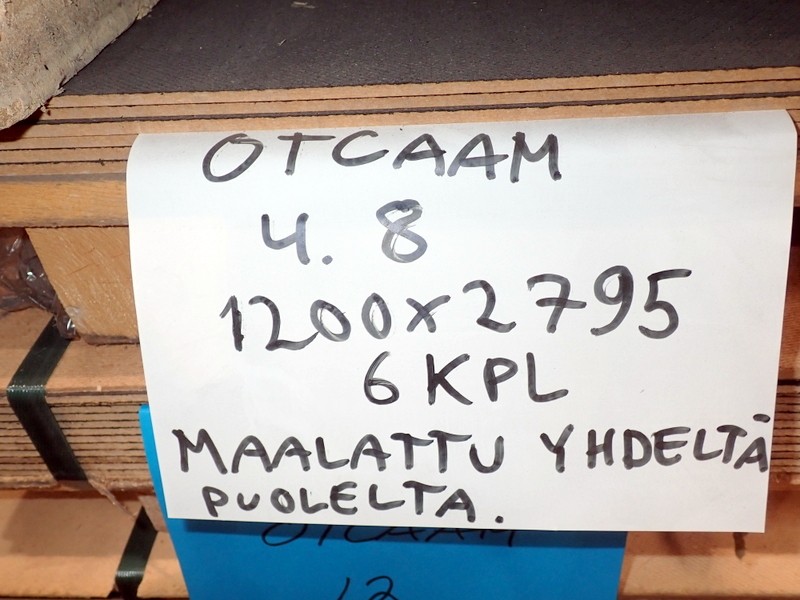 OTCAAM
4. 8
1200x2795
6 KPL
MAALATTU YHDELTÄ
PUOLELTA.
OTCAAM
12